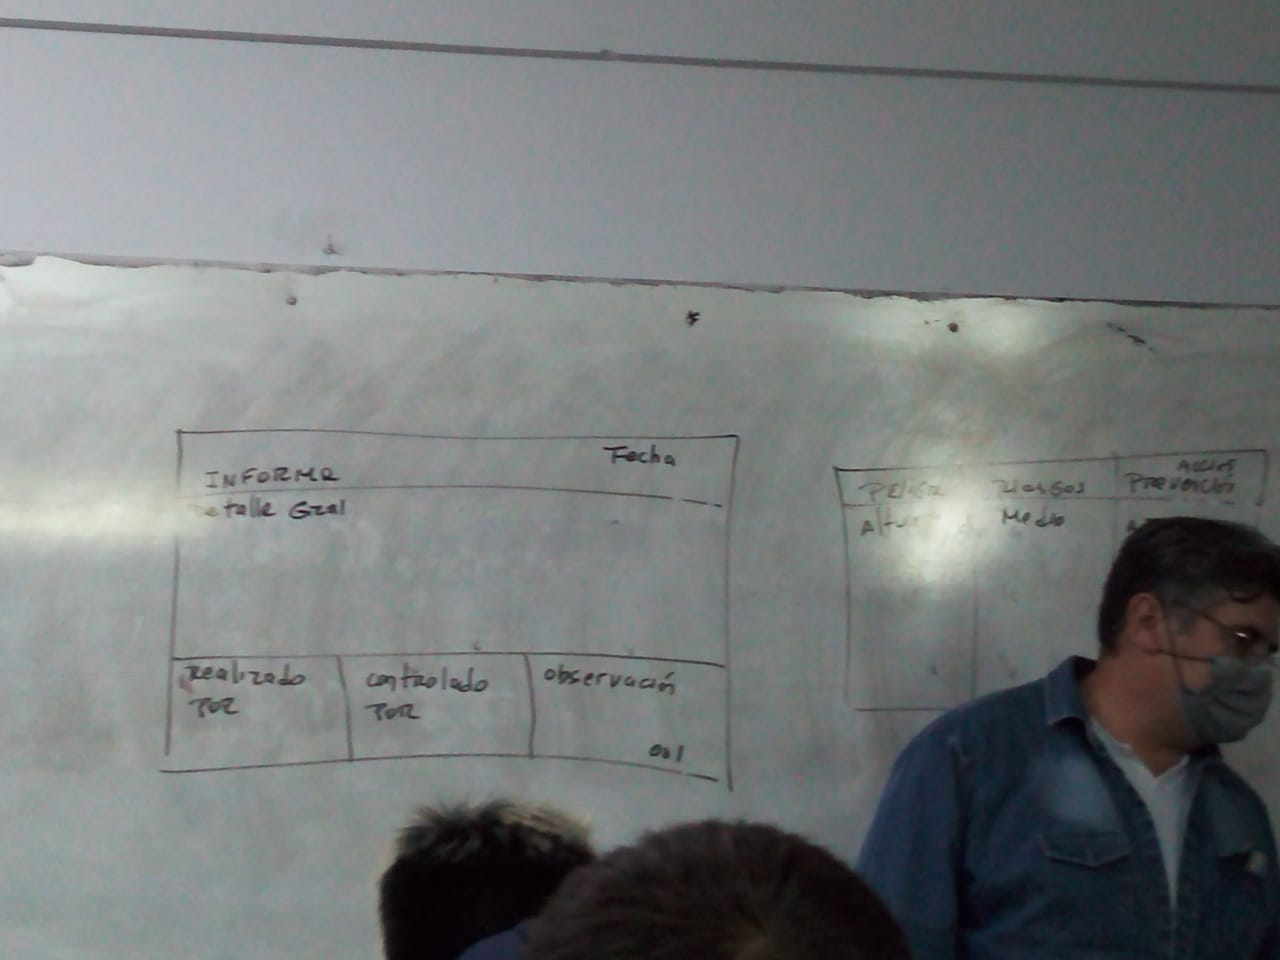 INFORME
Fecha
Detalle Gral
Realizado
POR
controlado
POR
observación
001
Riesgos
Acción
Prevención
Medio